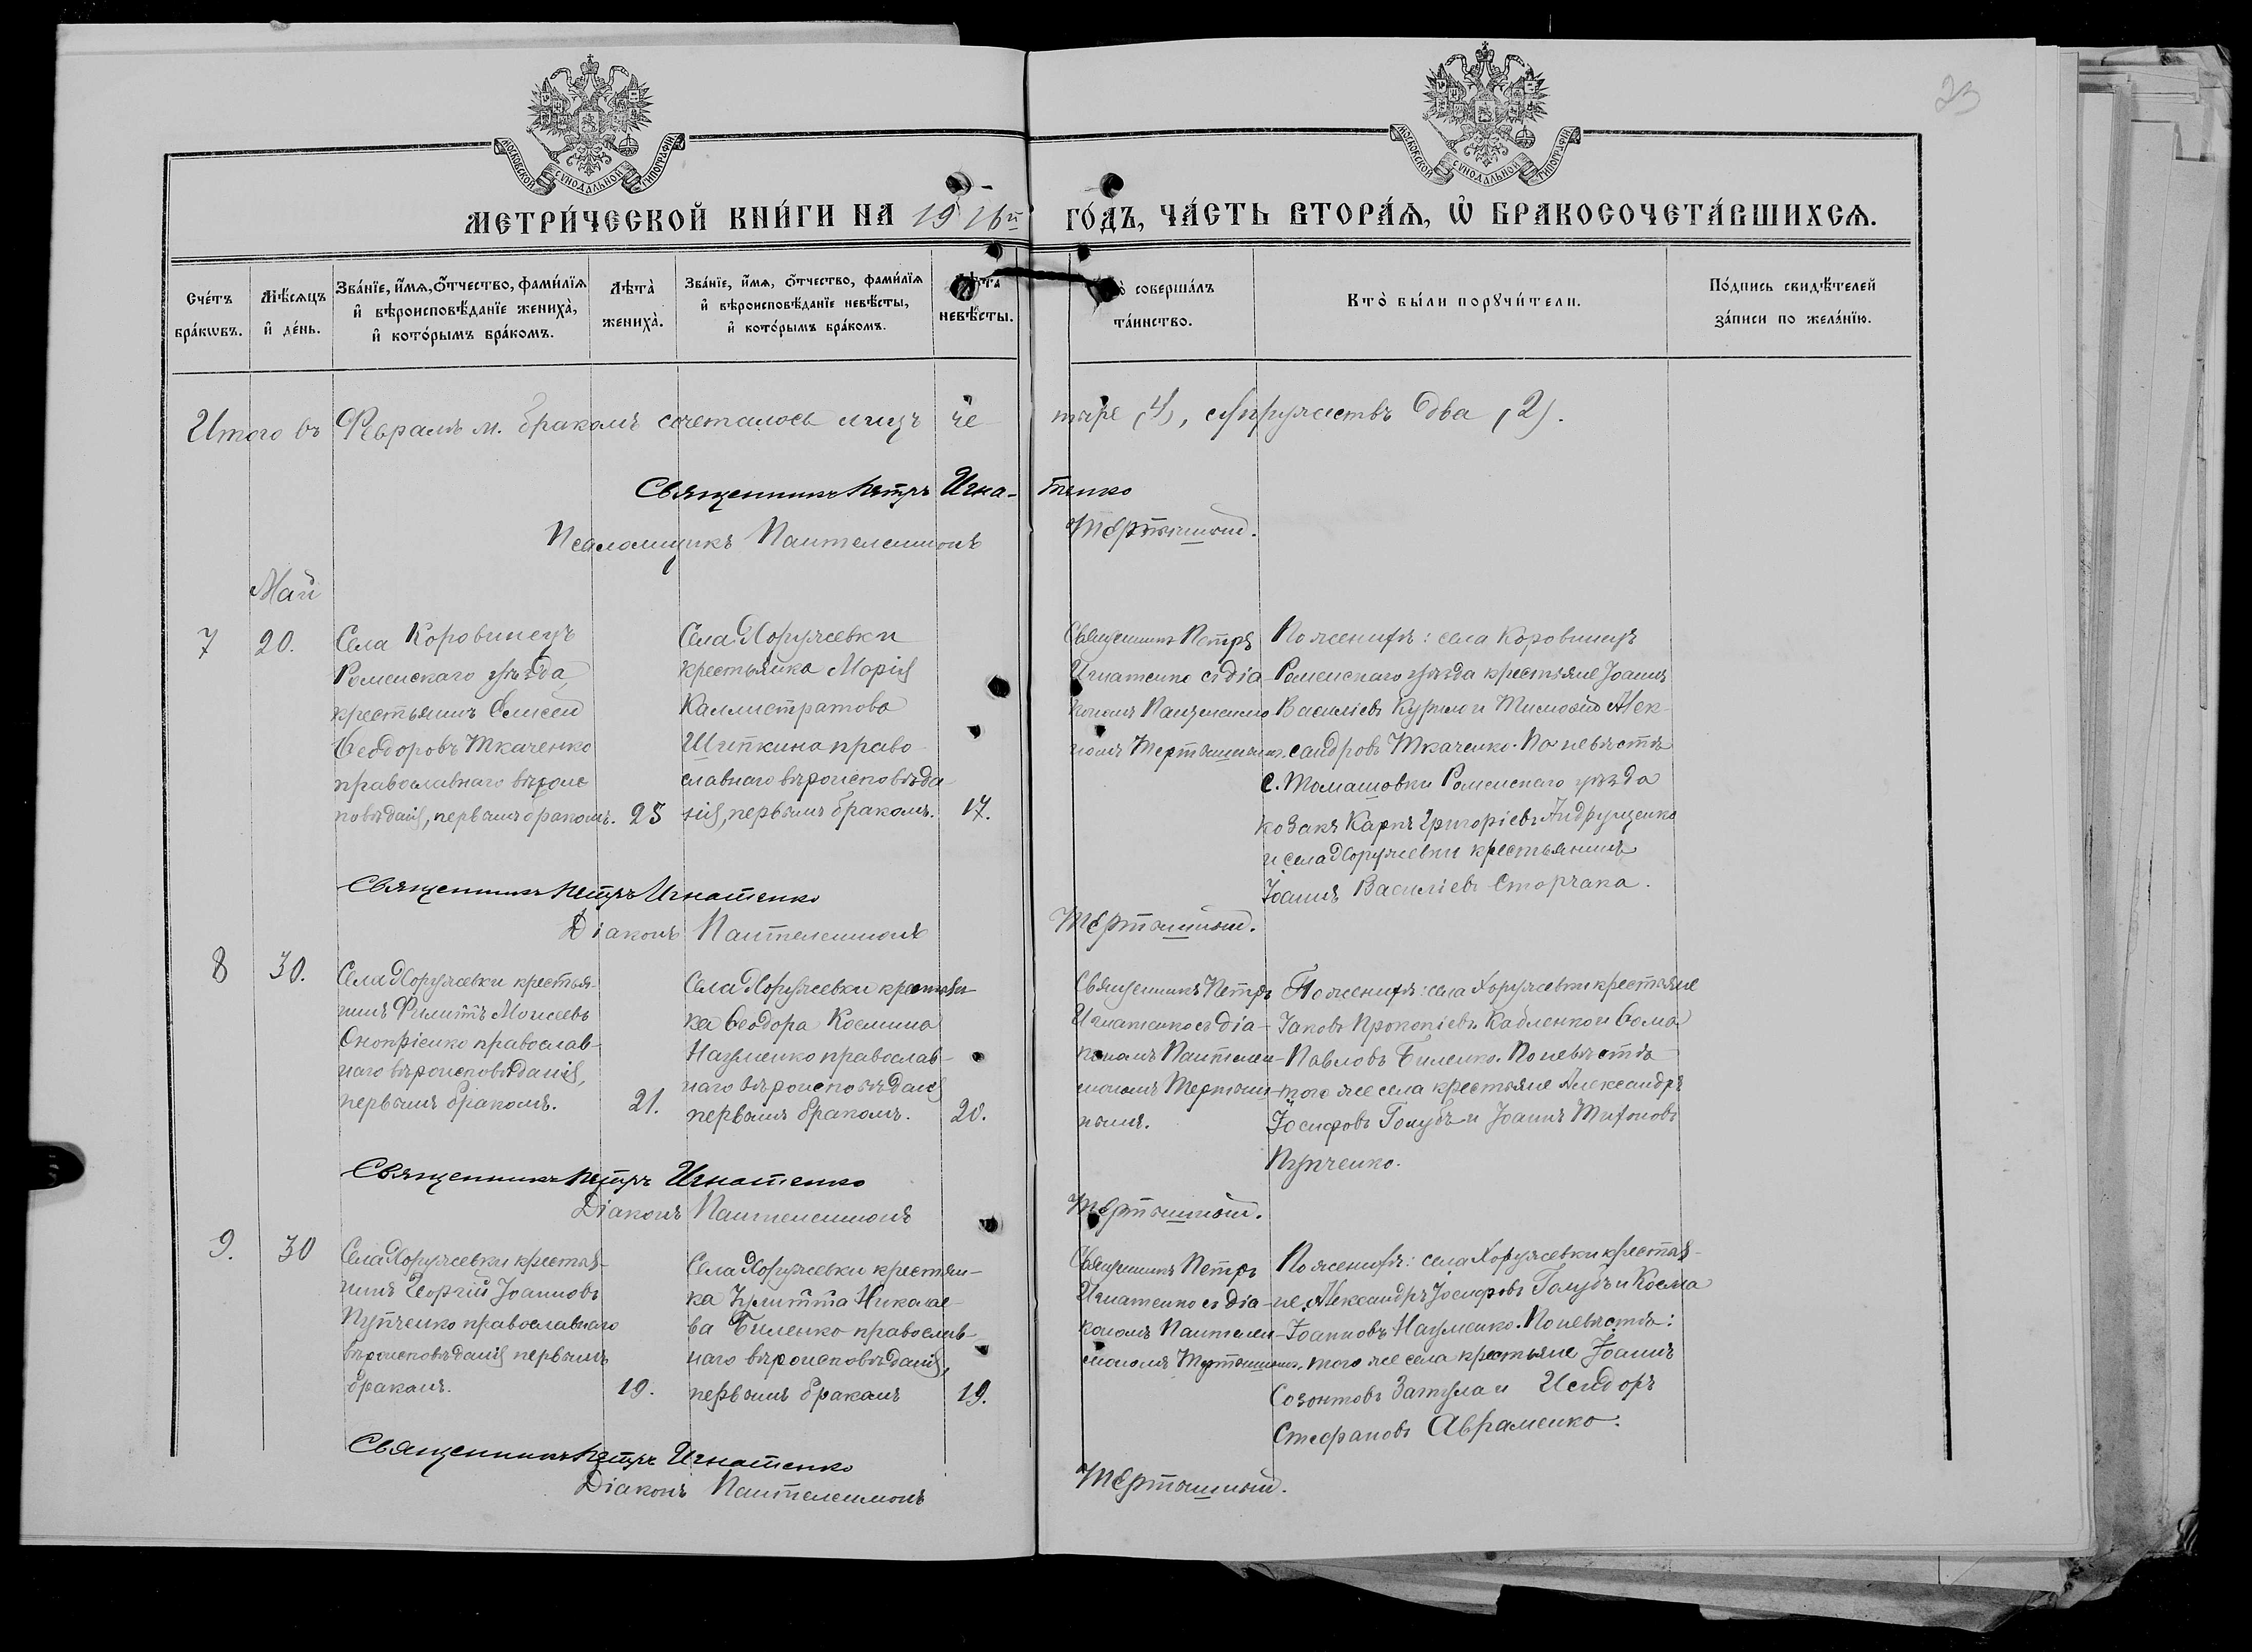 23
МОСКОВСКОЙ СѴНОДАЛЬНОЙ ТИПОГРАФІИ
МОСКОВСКОЙ СѴНОДАЛЬНОЙ ТИПОГРАФІИ
МЕТРИ́ЧЕСКОЙ КНИ́ГИ НА 1916й ГО́ДЪ, ЧА́СТЬ ВТОРА́Ѧ, Ѽ БРАКОСОЧЕТА́ВШИХСѦ.
Сче́тъ бра́кѡвъ.
Мѣ́сѧцъ и҆ де́нь.
Зва́нїе, и҆́мѧ, ѻ҆́тчество, фами́лїѧ и҆ вѣроисповѣ́данїе жениха̀, и҆ кото́рымъ бра́комъ.
Лѣта̀ жениха̀.
Зва́нїе, и҆́мѧ, ѻ҆́тчество, фами́лїѧ и҆ вѣроисповѣ́данїе невѣ́сты, и҆ кото́рымъ бра́комъ.
Лѣта̀ невѣ́сты.
Кто̀ соверша́лъ та́инство.
Кто̀ бы́ли порꙋчи́тели.
По́дпись свидѣ́телей за́писи по жела́нїю.
Итого въ Февралѣ м. бракомъ сочеталось лицъ четыре (4), супружествъ два (2).
Священникъ Петръ Игнатенко
Псаломщикъ Пантелеимонъ Тертышный.
Май
7
20.
Села Коровинецъ
Роменскаго уѣзда,
крестьянинъ Елисей
Ѳеодоровъ Ткаченко
православнаго вѣроис
повѣданія, первымъ бракомъ.
25
Села Хоружевки
крестьянка Марія
Каллистратова
Шипкина право
славнаго вѣроисповѣда
нія, первымъ бракомъ.
17.
Священникъ Петръ
Игнатенко съ діа
кономъ Пантелеимо
номъ Тертышнымъ.
По женихѣ: села Коровинецъ
Роменскаго уѣзда крестьяне Іоаннъ
Василіевъ Курило и Тимофей Алек
сандровъ Ткаченко. По невѣстѣ
с. Томашовки Роменскаго уѣзда
козакъ Карпъ Григоріевъ Андрущенко
и села Хоружевки крестьянинъ
Іоаннъ Василіевъ Сторчака.
Священникъ Петръ Игнатенко
Діаконъ Пантелеимонъ Тертышный.
8
30.
Села Хоружевки крестья-
нинъ Филиппъ Моисеевъ
Онопріенко православ-
наго вѣроисповѣданія,
первымъ бракомъ.
21.
Села Хоружевки крестьян-
ка Ѳеодора Космина
Науменко православ-
наго вѣроисповѣданія
первымъ бракомъ.
20.
Священникъ Петръ
Игнатенко съ діа-
кономъ Пантелеи-
мономъ Тертыш-
нымъ.
По женихѣ: села Хоружевки крестьяне
Іаковъ Прокопіевъ Кабленко и Ѳома
Павловъ Биленко. По невѣстѣ
того же села крестьяне Александръ
Іосифовъ Голубъ и Іоаннъ Тихоновъ
Пупченко.
Священникъ Петръ Игнатенко
Діаконъ Пантелеимонъ Тертышный.
9.
30
Села Хоружевки крестья-
нинъ Георгій Іоанновъ
Пупченко православнаго
вѣроисповѣданія первымъ
бракомъ.
19.
Села Хоружевки крестьян-
ка Іулитта Николае-
ва Биленко православ-
наго вѣроисповѣданія,
первымъ бракомъ
19.
Священникъ Петръ
Игнатенко съ діа-
кономъ Пантелеи-
мономъ Тертышнымъ.
По женихѣ: села Хоружевки крестья-
не, Александръ Іосифовъ Голубъ и Косма
Іоанновъ Науменко. По невѣстѣ:
того же села крестьяне Іоаннъ
Созонтовъ Затула и Исидоръ
Стефановъ Авраменко.
Священникъ Петръ Игнатенко
Діаконъ Пантелеимонъ Тертышный.